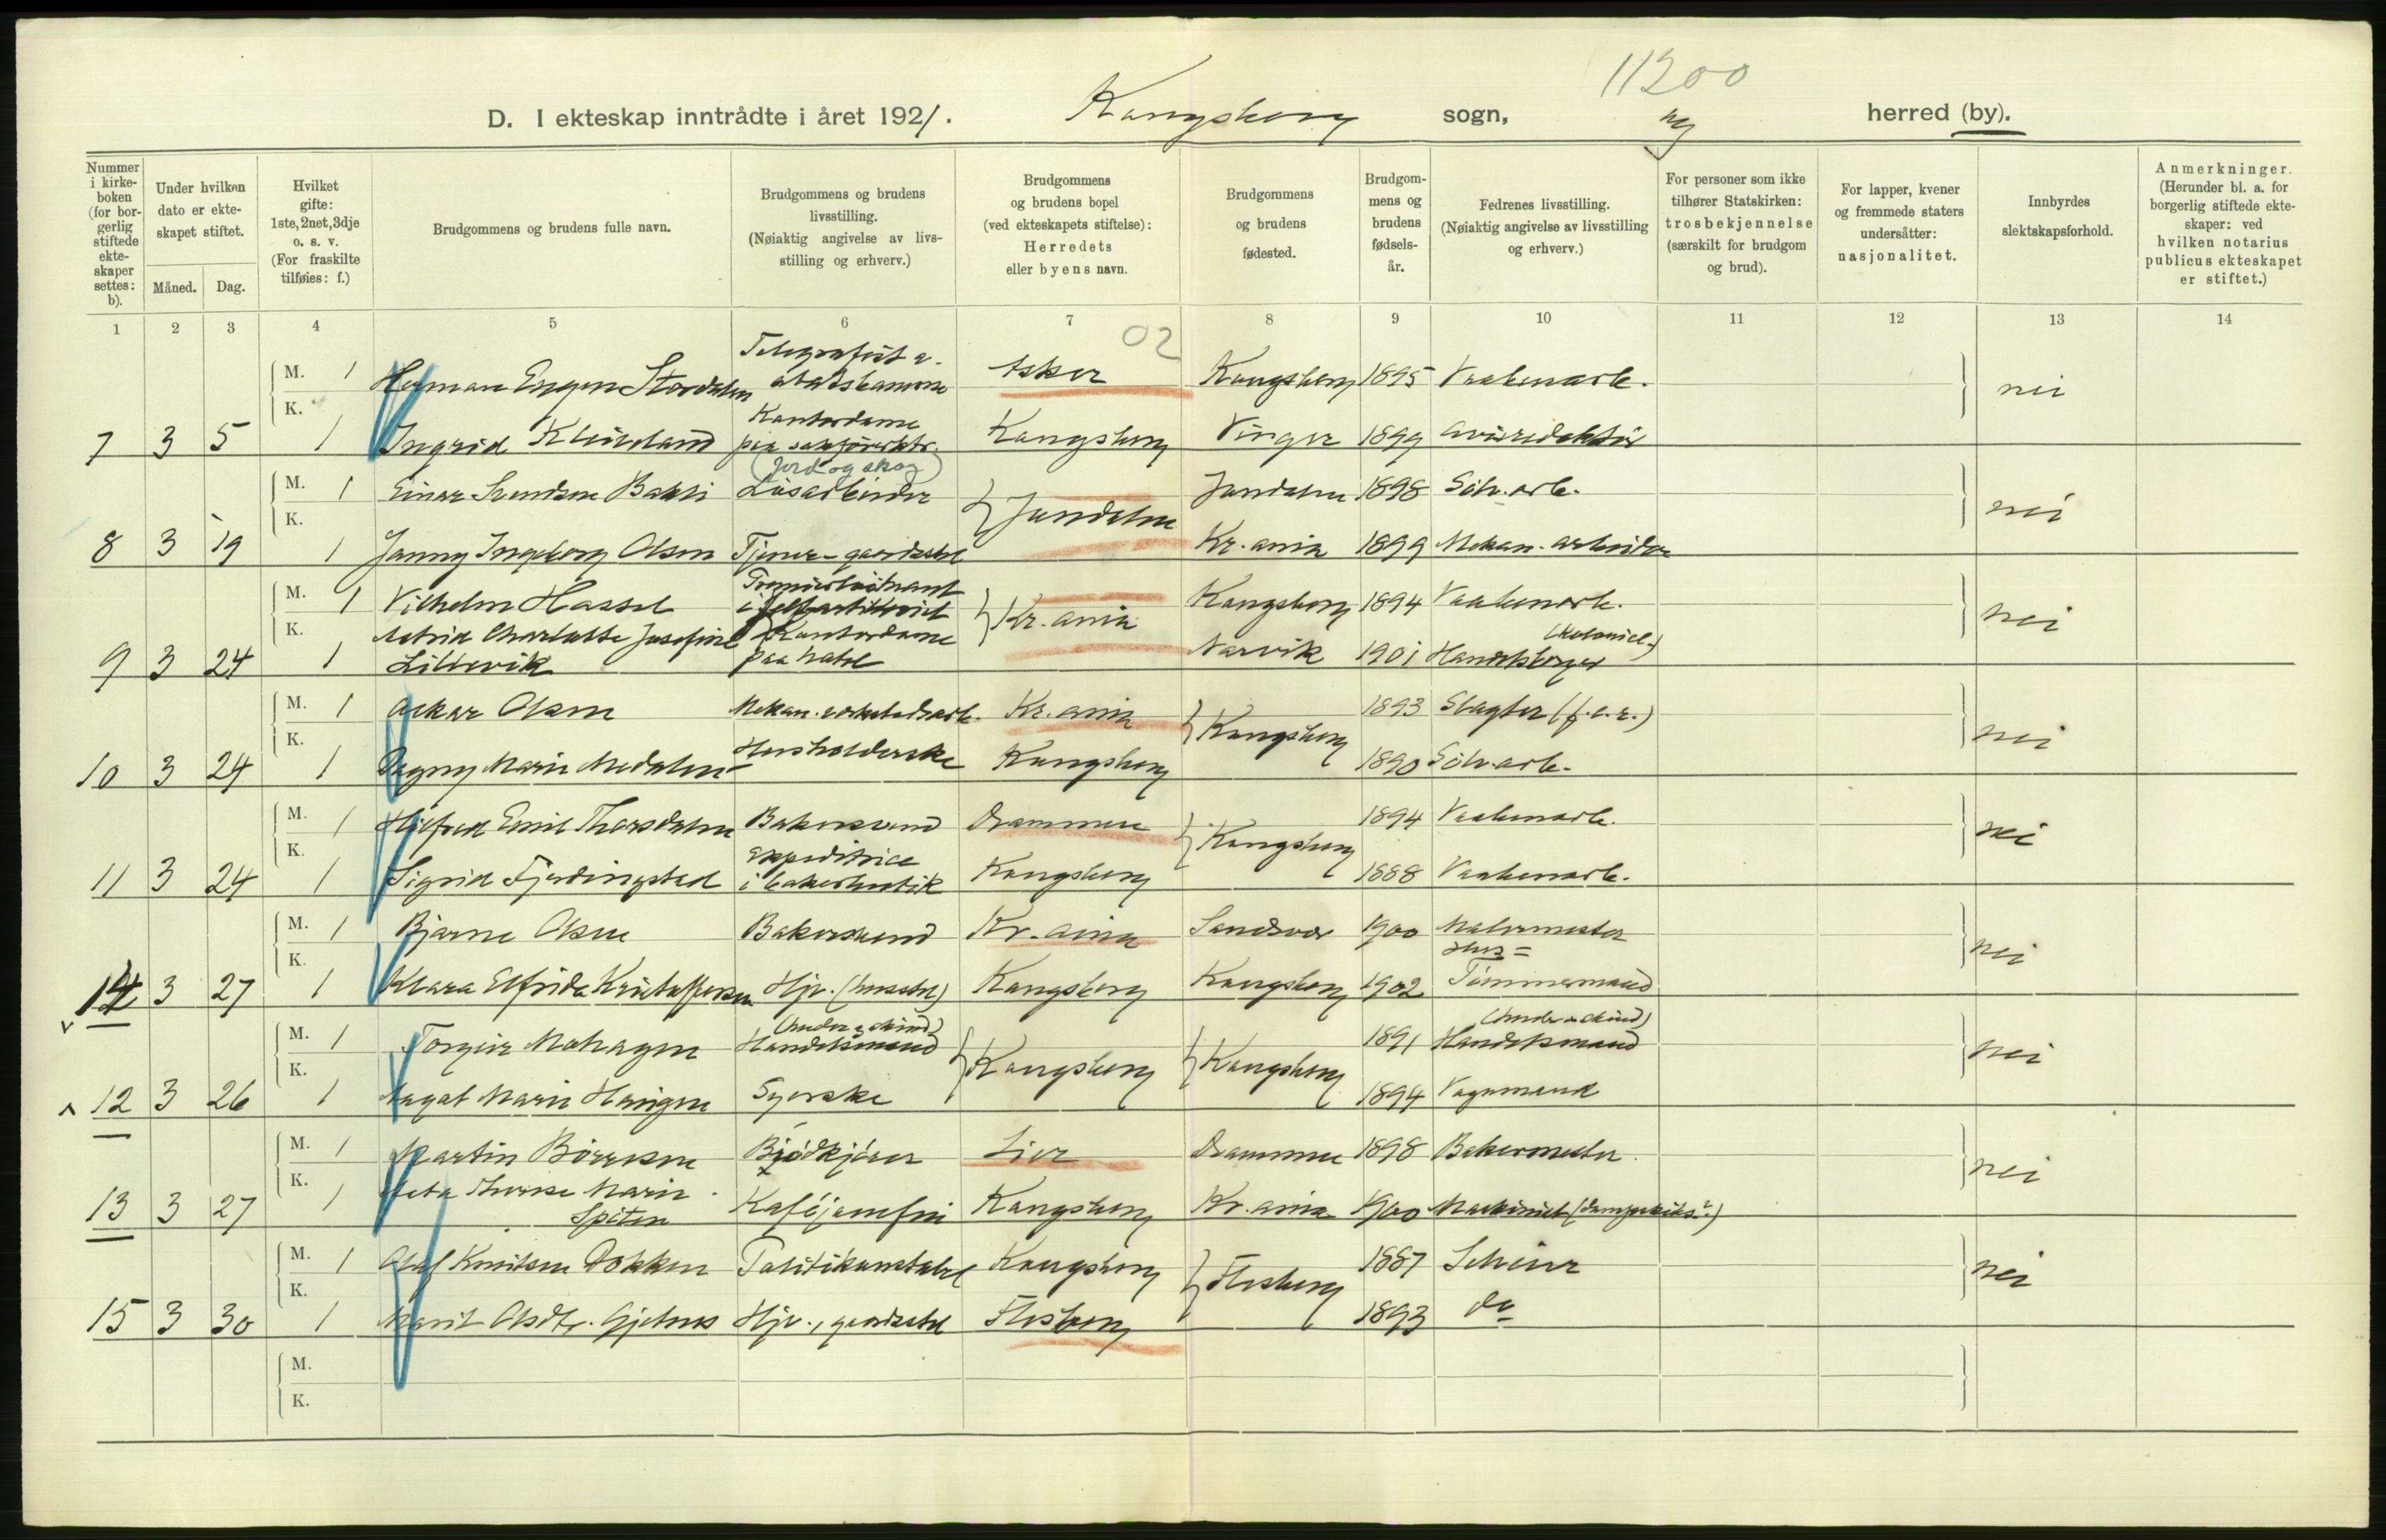 11200
D. I ekteskap inntrådte i året 1921. Kongsberg sogn, by herred (by).
Nummer i kirkeboken (for borgerlig stiftede ekteskaper settes: b).
Under hvilken dato er ekteskapet stiftet.
Måned. Dag.
Hvilket gifte: 1ste, 2net, 3dje o. s. v. (For fraskilte tilføies: f.)
Brudgommens og brudens fulle navn.
Brudgommens og brudens livsstilling. (Nøiaktig angivelse av livsstilling og erhverv.)
Brudgommens og brudens bopel (ved ekteskapets stiftelse): Herredets eller byens navn.
Brudgommens og brudens fødested.
Brudgommens og brudens fødselsår.
Fedrenes livsstilling. (Nøiaktig angivelse av livsstilling og erhverv.)
For personer som ikke tilhører Statskirken: trosbekjennelse (særskilt for brudgom og brud).
For lapper, kvener og fremmede staters undersåtter: nasjonalitet.
Innbyrdes slektskapsforhold.
Anmerkninger. (Herunder bl. a. for borgerlig stiftede ekteskaper: ved hvilken notarius publicus ekteskapet er stiftet.)
1 2 3 4 5 6 7 8 9 10 11 12 13 14
02
Telegrafist v.
M. 1 Herman Eugen Stordalen statsbanerne Asker Kongsberg 1895 Vaabenarb. nei
K. Kontordame
7 3 5 1 Ingrid paa sakførerktr. Kongsberg Vinger 1899 avisredaktør
(Jord og skog)
M. 1 Einar Svendsen Bakli Løsarbeider Jondalen Jondalen 1898 Sølv.arb. nei
K.
8 3 19 1 Jenny Ingeborg Olsen Tjener-gaardsstel Kr.ania 1899 Mekan. arbeider
Premierløitnant
M. 1 Vilhelm Hassel i feltartilleriet Kr.ania Kongsberg 1894 Vaabenarb. nei
K. Astrid Charlotte Josefine Kontordame (kolonial-)
9 3 24 1 Lillevik paa hotel Narvik 1901 Handelsborger
M. 1 Oskar Olsen Mekan. verkstedsarb. Kr.ania Kongsberg 1893 Slagter (f.e.r.) nei
K.
10 3 24 1 Dagny Marie Medalen Husholderske Kongsberg 1890 Sølv.arb.
M. 1 Hilfred Emil Thorsdalen Bakersvend Drammen Kongsberg 1894 Vaabenarb. nei
K. Expeditrice
11 3 24 1 Sigrid Fjerdingstad i bakerbutik Kongsberg 1888 Vaabenarb.
M. 1 Bjarne Olsen Bakersvend Kr.ania Sandsvær 1900 Malermester nei
K. Hus=
14 3 27 1 Klara Elfrida Kristoffersen Hjv. (husstel) Kongsberg Kongsberg 1902 Tømmermand
v (huder & skind) (huder & skind)
M. 1 Torgeir Mohagen Handelsmand Kongsberg Kongsberg 1891 Handelsmand nei
K.
12 3 26 1 Aagot Marie Haugen Syerske 1894 Vognmand
M. 1 Martin Børresen Brødkjører Lier Drammen 1898 Bakermester. nei
K. Marie
13 3 27 1 Spiten Kaféjomfru Kongsberg Kr.ania 1900 Maskinist
M. 1 Olaf Knutsen Dokken Politikonstabel Kongsberg Flesberg 1887 Selveier nei
K.
15 3 30 1 Marit Olsdtr. Gjellnes Hjv., gaardsstel Flesberg 1893 do
M.
K.